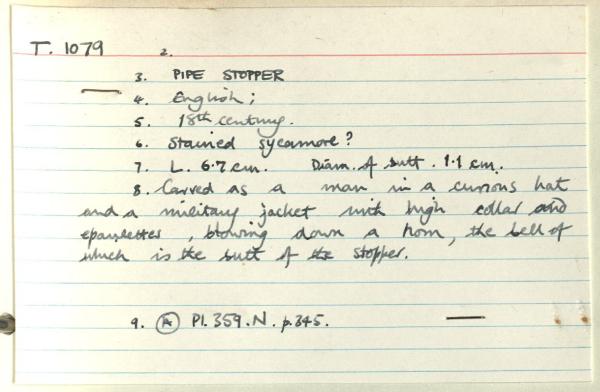 T. 1079 2.
3. PIPE STOPPER
4. English;
5. 18th century.
6. Stained sycamore?
7. L. 6.7 cm. Diam. of butt. 1.1 cm.
8. Carved as a man in a curious hat
and a military jacket with high collar and
epaulettes, blowing down a horn, the bell of
which is the butt of the stopper.
9. (A) Pl. 359. N. p. 345.